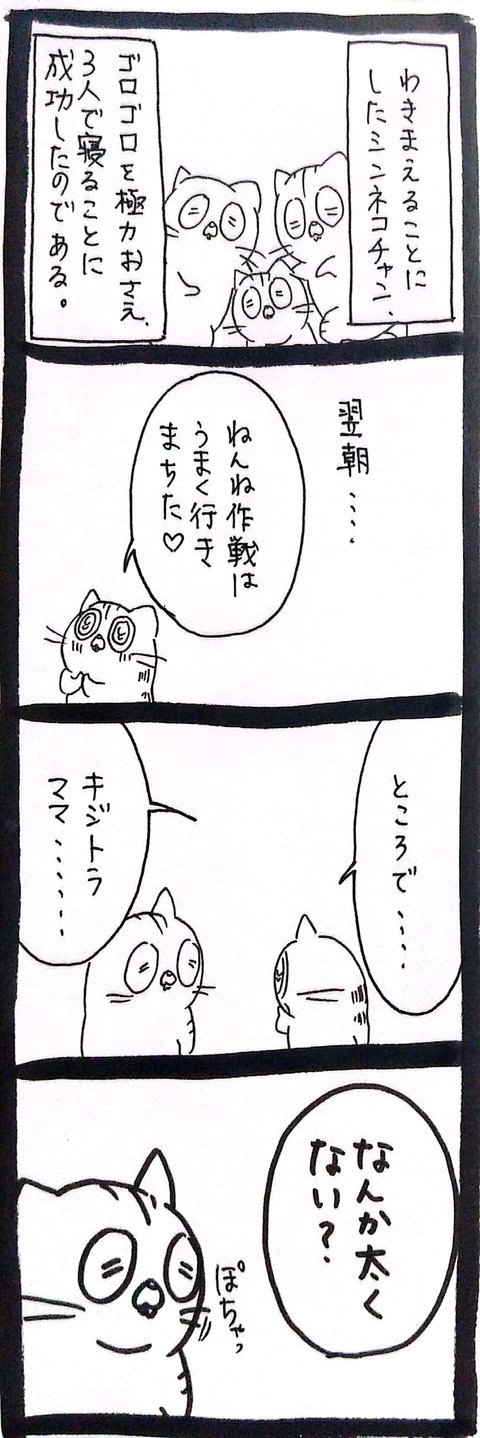 わきまえることに
したシンネコチャン、
ゴロゴロを極力おさえ、
3人で寝ることに
成功したのである。
翌朝....
ねんね作戦は
うまく行き
まちた♡
ところで....
キジトラ
ママ......
なんか太く
ない?
ぽちゃっ